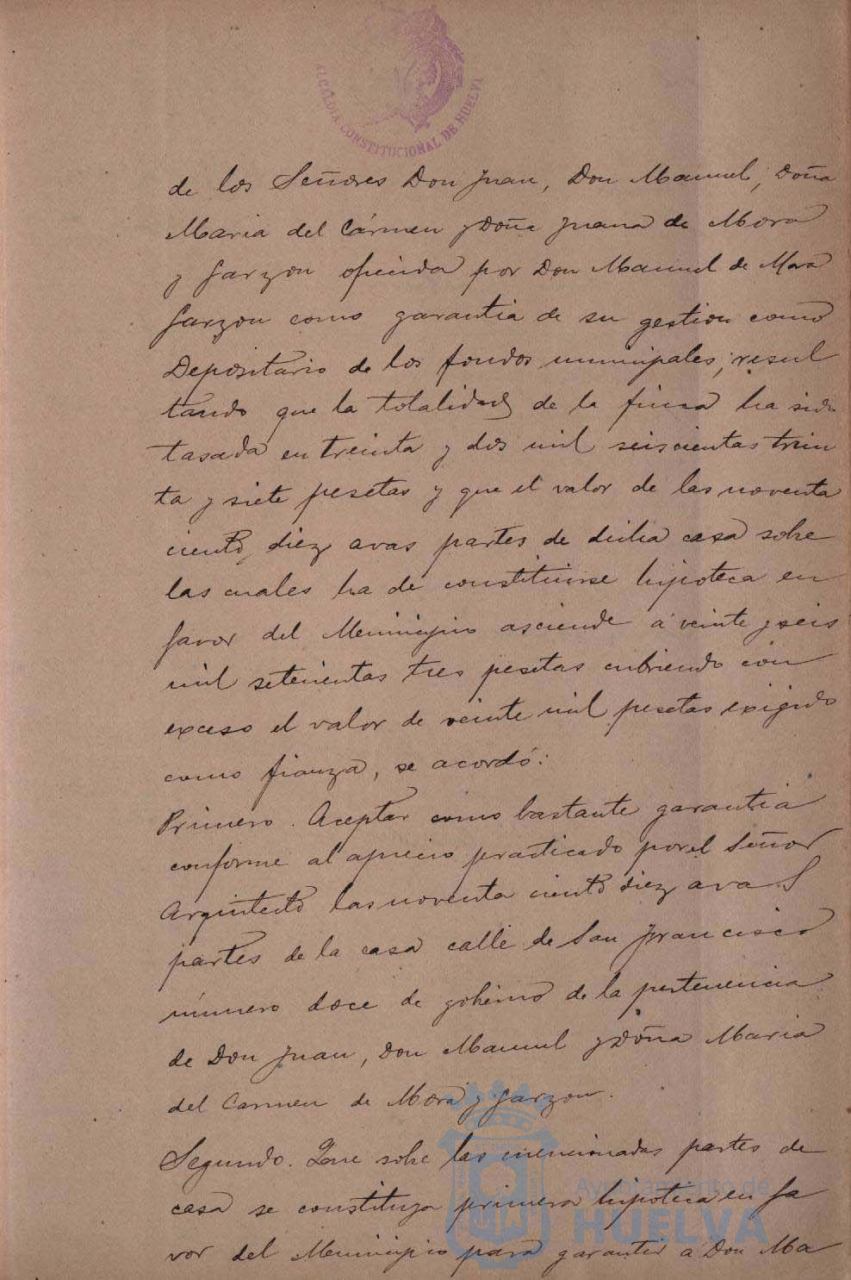 ALCALDIA CONSTITUCIONAL DE HUELVA
de los Señores Don Juan, Don Manuel, Doña
Maria del Cármen y Doña Juana de Mora
y Garzon ofrecida por Don Manuel de Mora
Garzon como garantia de su gestion como
Depositario de los fondos municipales; resul
tando que la totalidad de la finca ha sido
tasada en treinta y dos mil seiscientas trein
ta y siete pesetas y que el valor de las noventa
ciento diez avas partes de dicha casa sobre
las cuales ha de constituirse hipoteca en
favor del Municipio asciende á veinte y seis
mil setecientas tres pesetas cubriendo con
exceso el valor de veinte mil pesetas exigido
como fianza, se acordó:
Primero. Aceptar como bastante garantia
conforme al aprecio practicado por el Señor
Arquitecto las noventa ciento diez avas
partes de la casa calle de San Francisco
número doce de gobierno de la pertenencia
de Don Juan, Don Manuel y Doña Maria
del Carmen de Mora y Garzon.
Segundo. Que sobre las mencionadas partes de
casa se constituya primera hipoteca en fa
vor del Municipio para garantir a Don Ma
Ayuntamiento de
HUELVA